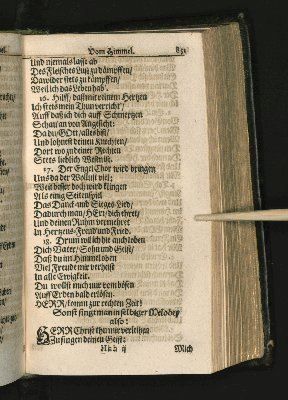 Vom Himmel. 831
Und niemals lasse ab
Des Fleisches Lust zu dämpffen/
Dawider stets zu kämpffen/
Weil ich das Leben hab'.
16. Hilff/ daß mit reinem Hertzen
Ich stets mein Thun verricht'/
Auff daß ich dich auff Schmertzen
Schau'an von Angesicht:
Da du/ GOtt/ alles bist/
Und lohnest deinen Knechten/
Dort wo zu deiner Rechten
Stets lieblich Wesen ist.
17. Der Engel Chor wird bringen
Uns da der Wollust viel;
Weit besser doch wird klingen
Als einig Seitenspiel
Das Danck- und Sieges-Lied/
Dadurch man/ HErr/ dich ehret/
Und deinen Ruhm vermehret
In Hertzens-Freud und Fried.
18. Drum will ich dir auch loben
Dich Vater/ Sohn und Geist/
Daß du im Himmel oben
Viel Freude mir verheist
In alle Ewigkeit.
Du wollst mich nur vom bösen
Auff Erden bald erlösen.
HERR/ komm zu rechter Zeit!
Sonst singt man in selbiger Melodey
also:
HERR Christ thu mir verleihen
Zu singen deinen Geist:
ij Mich